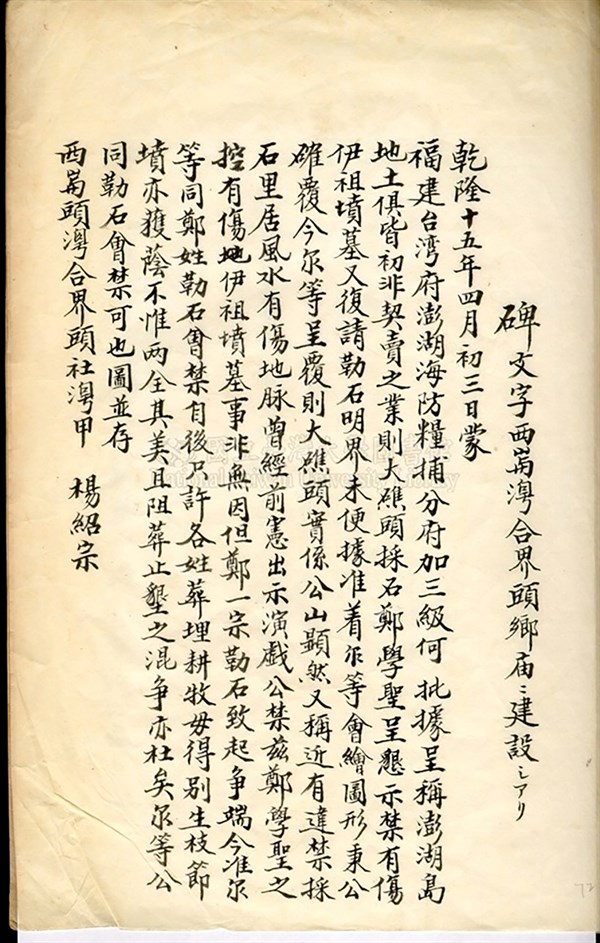 碑文字西嵵灣合界頭鄉庙ニ建設シアリ
乾隆十五年四月初三日蒙
福建台湾府澎湖海防糧捕分府加三級何 批據呈稱澎湖島
地土俱皆初非契賣之業則大礁頭採石鄭學聖呈懇示禁有傷
伊祖墳墓又復請勒石明界未便據准着尔等會繪圖形秉公
確覆今尔等呈覆則大礁頭實係公山顯然又稱近有違禁採
石里居風水有傷地脉曾經前憲出示演戲公禁茲鄭學聖之
控有傷地伊祖墳墓事非無因但鄭一宗勒石致起争端今准尔
等同鄭姓勒石會禁自後只許各姓葬埋耕牧毋得別生枝節
墳亦獲蔭不惟两全其美且阻葬止墾之混争亦杜矣尔等公
同勒石會禁可也圖並存
西嵵頭灣合界頭社灣甲 楊紹宗